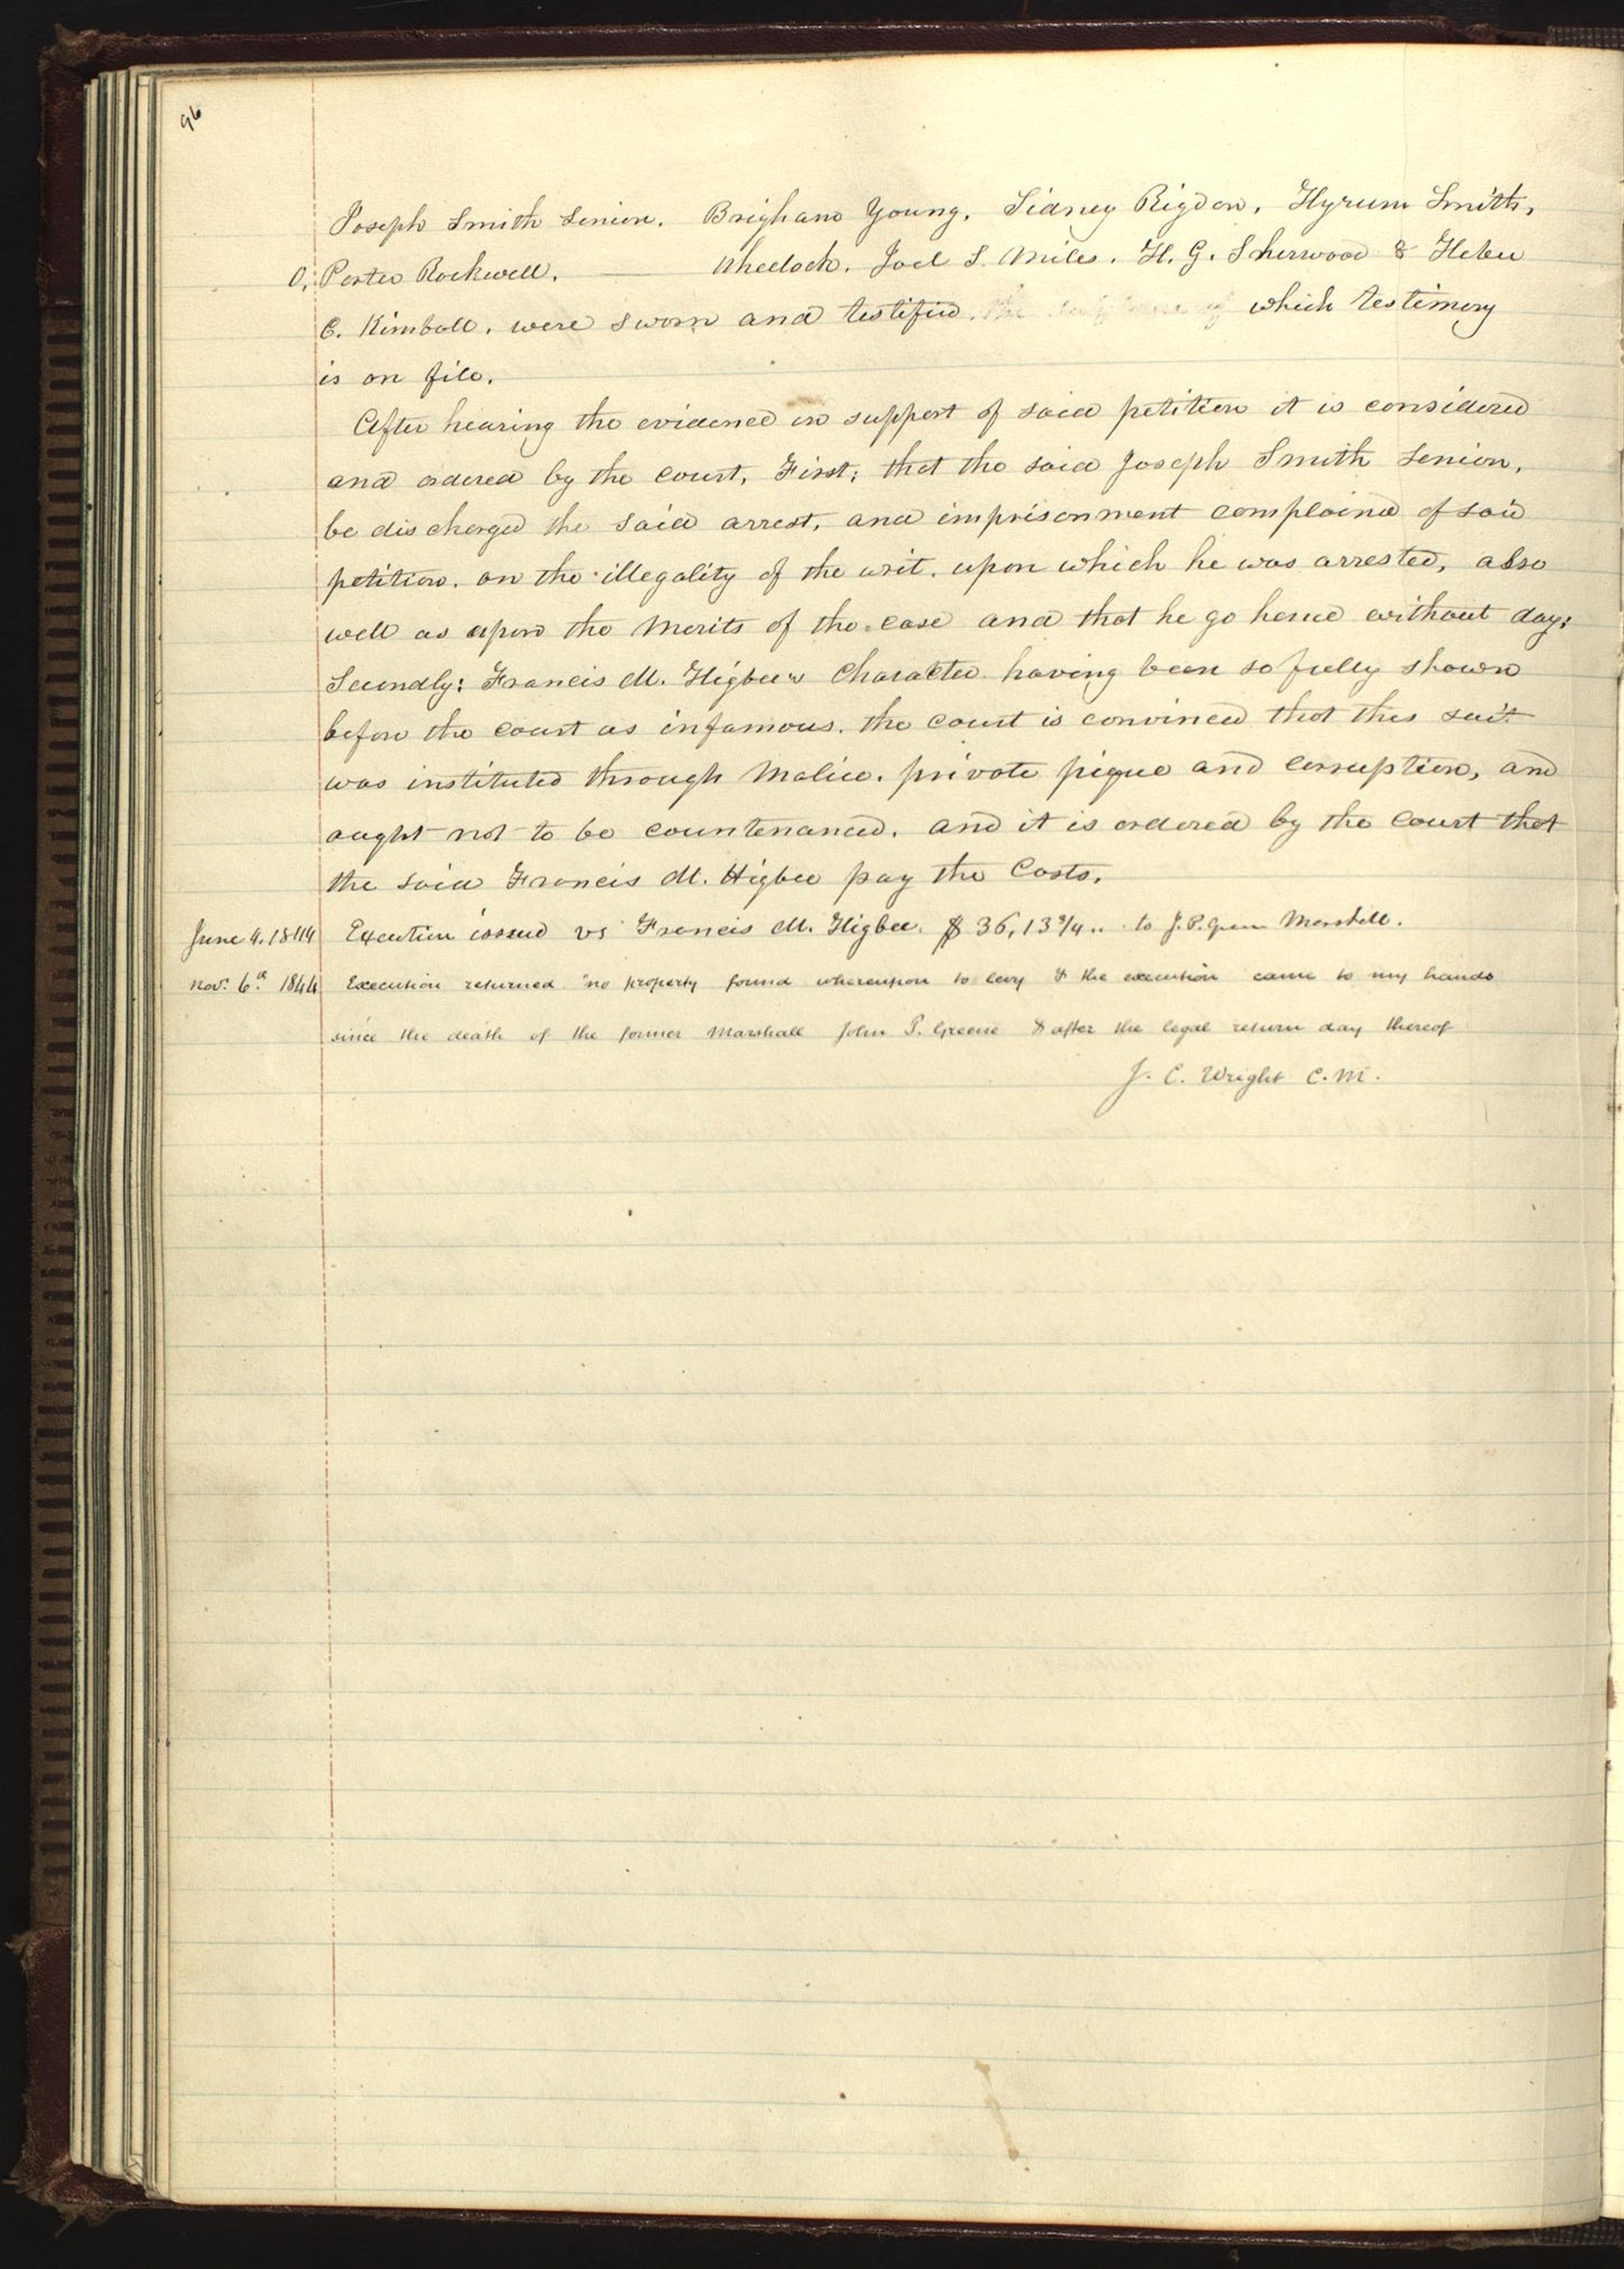 96
Joseph Smith Senior. Brigham Young, Sidney Rigdon, Hyrum Smith,
O. Porter Rockwell. ——— Wheelock. Joel S. Miles. H. G. Sherwood & Heber
C. Kimball. were sworn and testified. which testimony
is on file.
After hearing the evidence in support of said petition it is considered
and ordered by the court, First; that the said Joseph Smith Senior,
be discharged the said arrest, and imprisonment complained of said
petition. on the illegality of the writ. upon which he was arrested, also
well as upon the Merits of the case and that he go hence without day;
Secundly; Francis M. Higbee's Character having been so fully shown
before the court as infamous. the court is convinced that this suit
was instituted through Malice. private pique and corruption, and
ought not to be countenanced. and it is ordered by the Court that
the said Francis M. Higbee pay the Costs.
June 4. 1844 Execution issued vs Francis M. Higbee. $ 36,13 3/4 .. to J. P. Green Marshall.
Nov. 6th 1844 Execution returned "no property found whereupon to levy & the execution came to my hands
since the death of the former Marshall John P. Greene & after the legal return day thereof
J. C. Wright C. M.